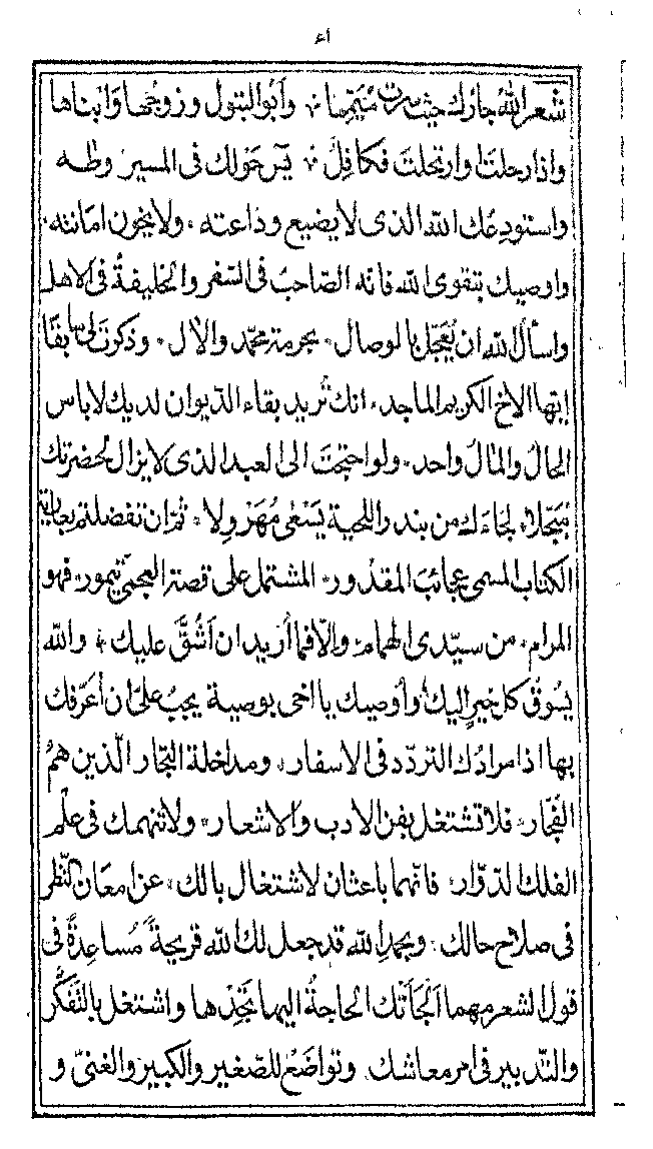 شعر الله جارك حيث سرت ميتمما ؞ وابو البتول وزوجها وابناها
واذا رحلت وارتحلت فكافل ؞ يس حولك في المسير وطه
واستودعك الله الذى لا يضيع وداعته ؞ ولا يخون امانته ؞
واوصيك بتقوى الله فانه الصاحبُ في السفر والخليفةُ في الاهل
واسأل الله ان يُعَجّل بالوصال ؞ بحرمة محمّد والآل ؞ وذكرتَ لي سابقًا
ايّها الاخ الكريم الماجد ؞ انك تُريد بقاء الدّيوان لديك لا باس
الحالُ والمالُ واحد ؞ ولو احتجتَ الى العبد الذى لا يزال لحضرتك
مبجّلا ؞ لجاءك من بندر اللحية يَسْعٰى مُهَرْوِلا ؞ ثمّ ان تفضلتم بعارية
الكتاب المسمى بعجائبَ المقدور ؞ المشتمل على قصة العجمىّ تيمور ؞ فهو
المرام ؞ من سيّدى الهمام ؞ والّا فما أُريد ان اَشُقَّ عليك ؞ والله
يَسُوقُ كل خيرٍ اليك ؞ وأوصيك يا اخى بوصية يجبُ علىّ ان اُعَرّفك
بها اذا مرادُك التردّد في الاسفار ؞ ومداخلة التجار الّذين همُ
الفُجّار ؞ فلا تشتغل بفن الادب والاشعار ؞ ولا تنهمك فى علم
الفلك الدوّار ؞ فانّهما باعثان لاشتغال بالك ؞ عن امعان النّظر
فى صلاح حالك ؞ وبحمدِ الله قد جعل لك الله قريحةً مُساعِدةً فى
قول الشعر مهما اَلْجَأَتْك الحاجةُ اليها تَجِدْها واشتغل بالتّفكّر
والتّدبير فى امر معاشك ؞ وتواضَعْ للصّغير والكبير والغنىّ و